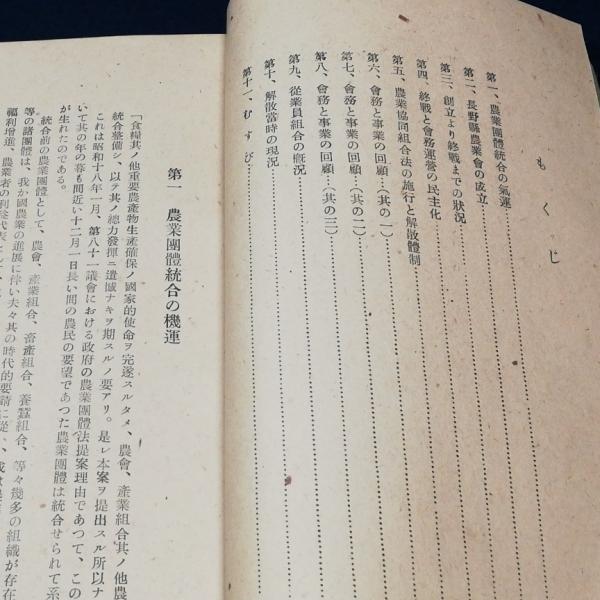 もくじ
第一、農業團體統合の氣運
第二、長野縣農業會の成立
第三、創立より終戰までの狀況
第四、終戰と會務運營の民主化
第五、農業協同組合法の施行と解散體制
第六、會務と事業の回顧…(其の一)
第七、會務と事業の回顧…(其の二)
第八、會務と事業の回顧…(其の三)
第九、從業員組合の槪況
第十、解散當時の現況
第十一、むすび
第一 農業團體統合の機運
「食糧其ノ他重要農產物生產確保ノ國家的使命ヲ完遂スルタメ、農會、產業組合其ノ他農
統合整備シ、以テ其ノ總力發揮ニ遺憾ナキヲ期スルノ要アリ。是レ本案ヲ提出スル所以ナ
これは昭和十八年一月、第八十一議會における政府の農業團體法提案理由であつて、この
いて其の年の暮も間近い十二月一日長い間の農民の要望であつた農業團體は統合せられて系
が生れたのである。
統合前の農業團體として、農會、產業組合、畜產組合、養蠶組合、等々幾多の組織が存在
等の諸團體は、我が國農業の進展に伴い夫々其の時代的要請に從
福利增進、農業者の利益代表として